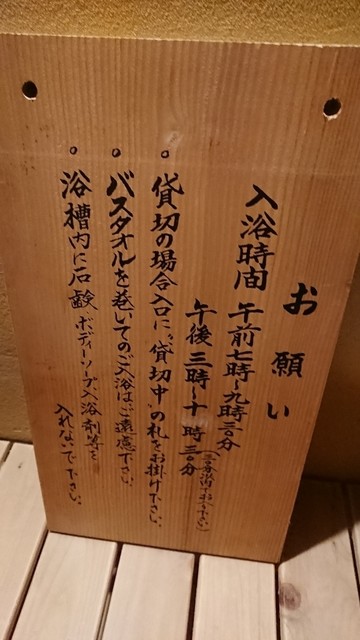 お願い
入浴時間 午前七時〜九時三〇分
午後三時〜十時三〇分
。貸切の場合入口に"貸切中"の札をお掛け下さい。
。バスタオルを巻いてのご入浴はご遠慮下さい。
。浴槽内に石鹸、ボディーソープ、入浴剤等を
入れないで下さい。